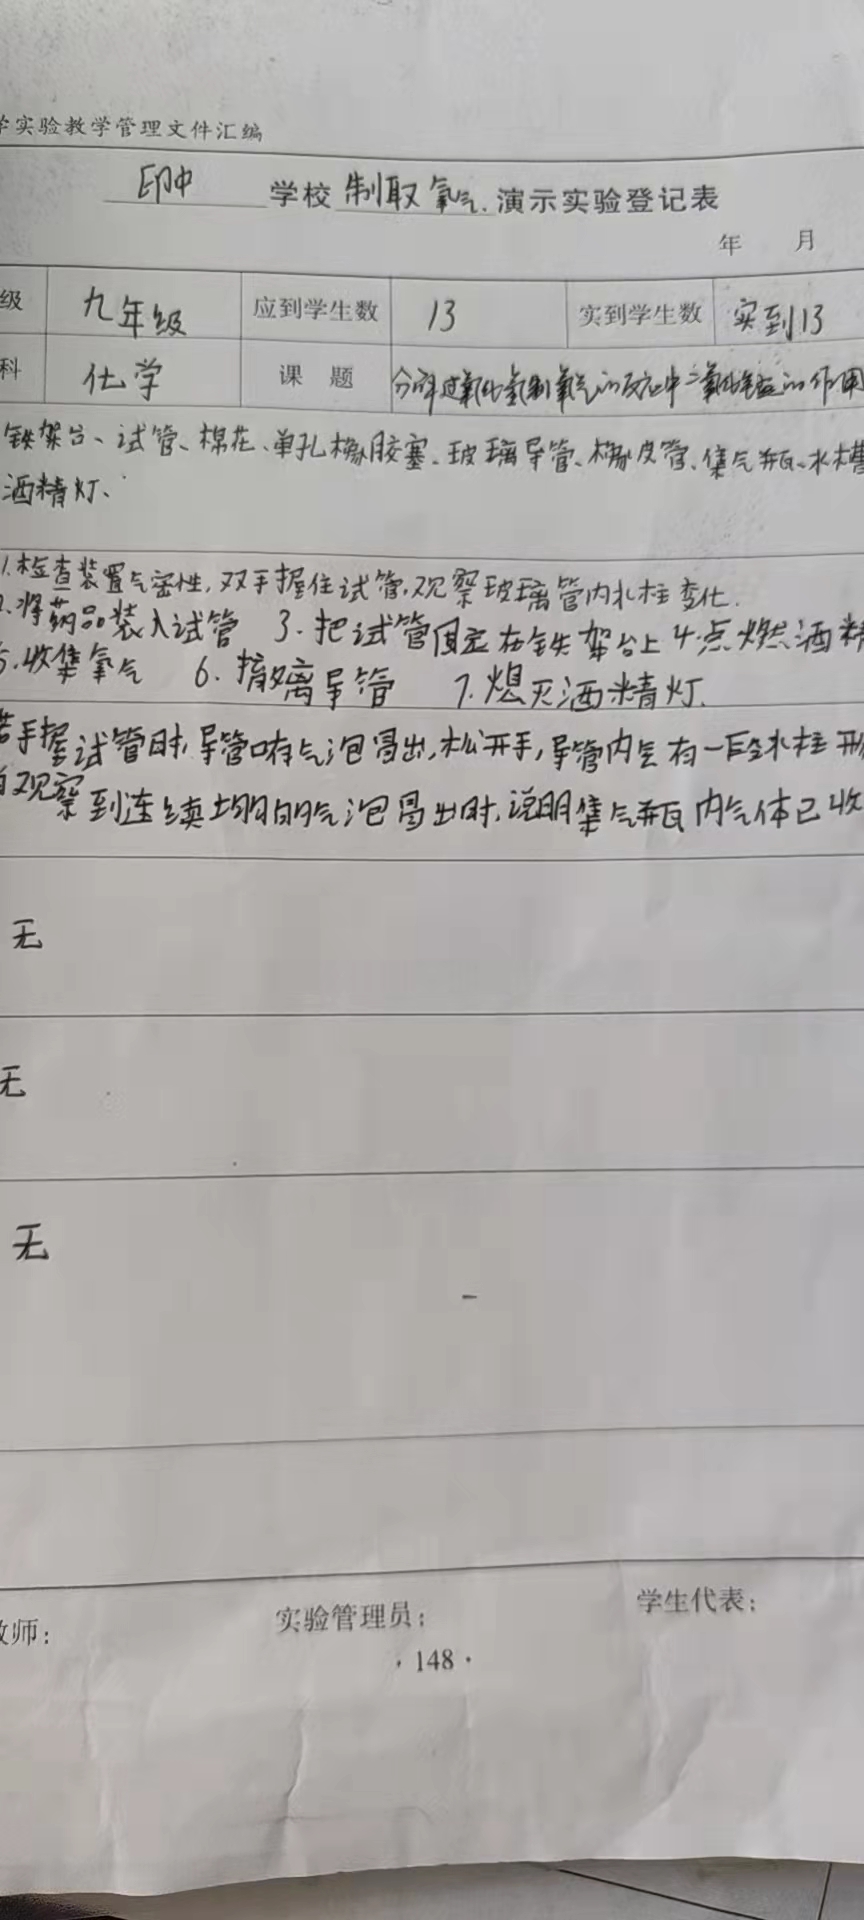 学实验教学管理文件汇编
印中 学校 制取氧气. 演示实验登记表
年 月
级 九年级 应到学生数 13 实到学生数 实到13
科 化学 课 题 分解过氧化氢制氧气的反应中二氧化锰的作用
铁架台、试管、棉花、单孔橡胶塞、玻璃导管、橡皮管、集气瓶、水槽
酒精灯、
1.检查装置气密性,双手握住试管,观察玻璃管内水柱变化.
2.将药品装入试管 3.把试管固定在铁架台上 4.点燃酒精
5.收集氧气 6.撤离导管 7.熄灭酒精灯.
若手握试管时,导管口有气泡冒出,松开手,导管内会有一段水柱形
观察到连续均匀的气泡冒出时,说明集气瓶内气体已收
无
无
无
教师: 实验管理员: 学生代表:
·148·